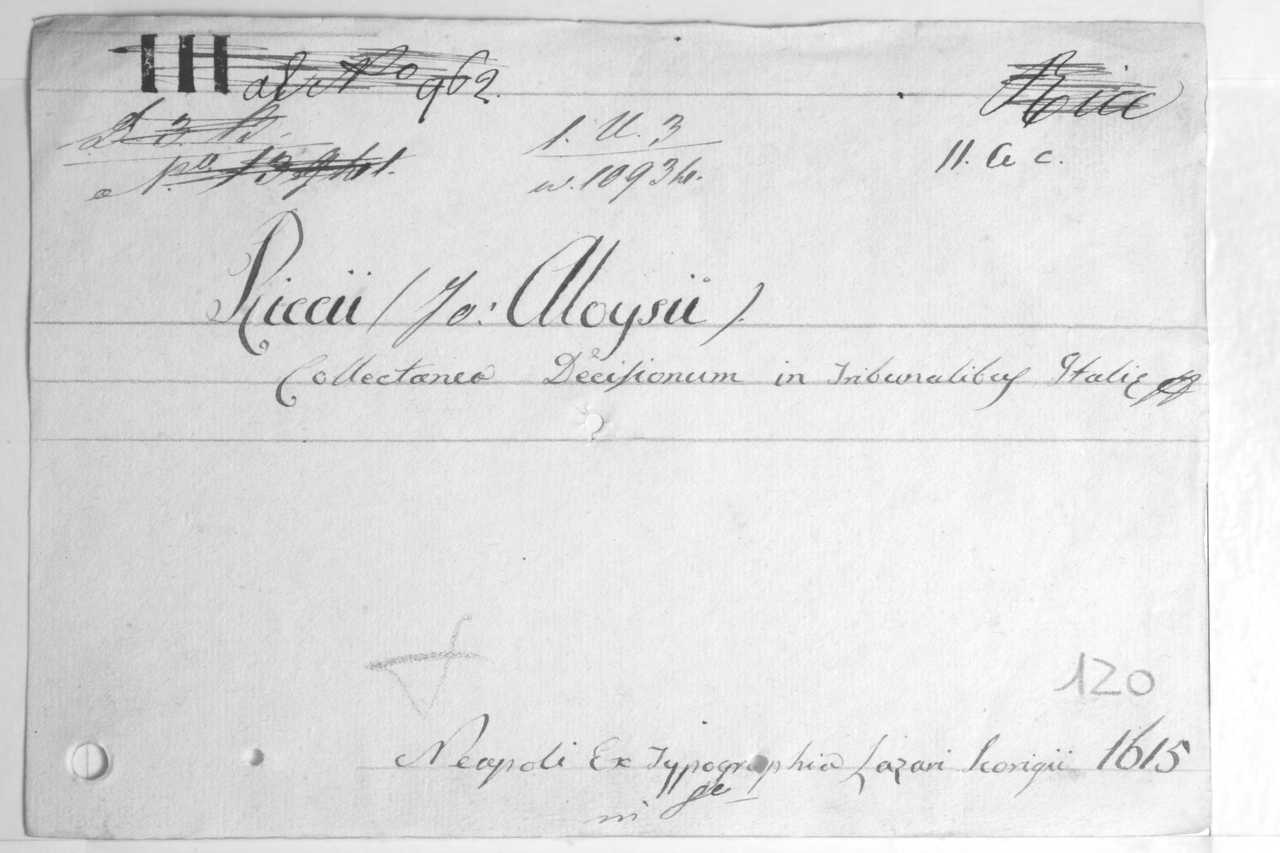 III 962.
1. U. 3
11. a c.
w. 10934.
Riccii (Jo: Aloysii).
Collectanea Decisionum in Tribunalibus Italiæ
120
Neapoli Ex Typographia Lazari Scorigii 1615
in